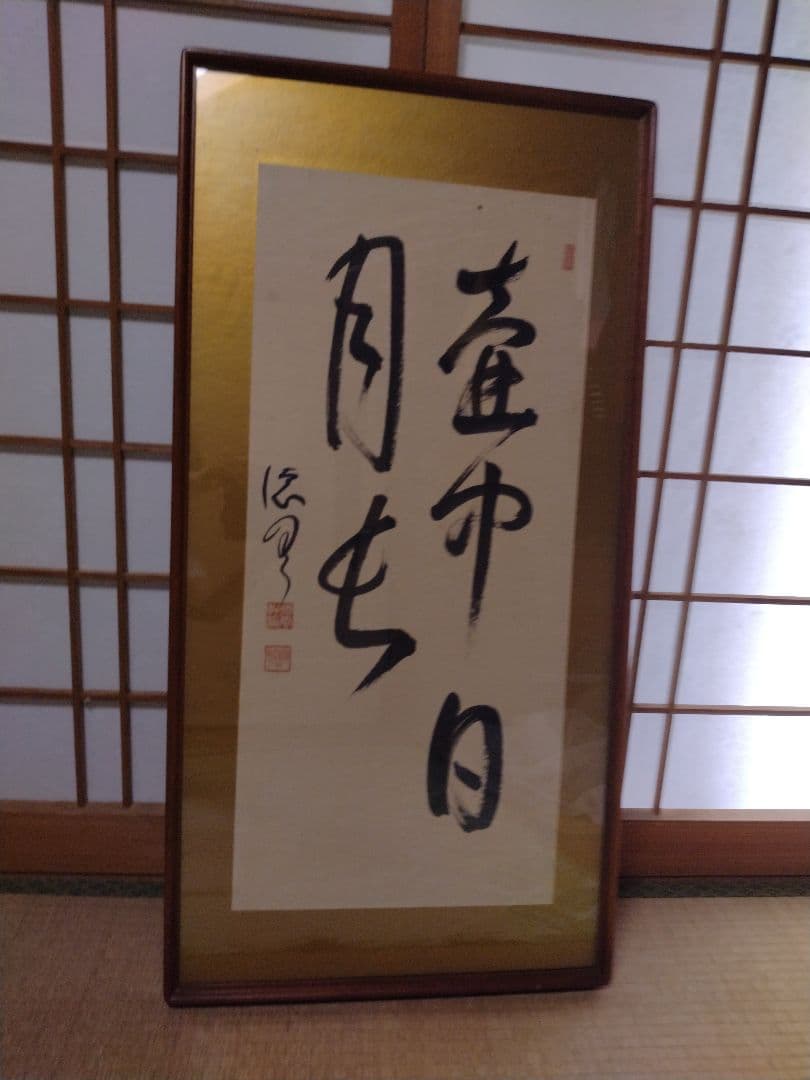 壷中日
月長